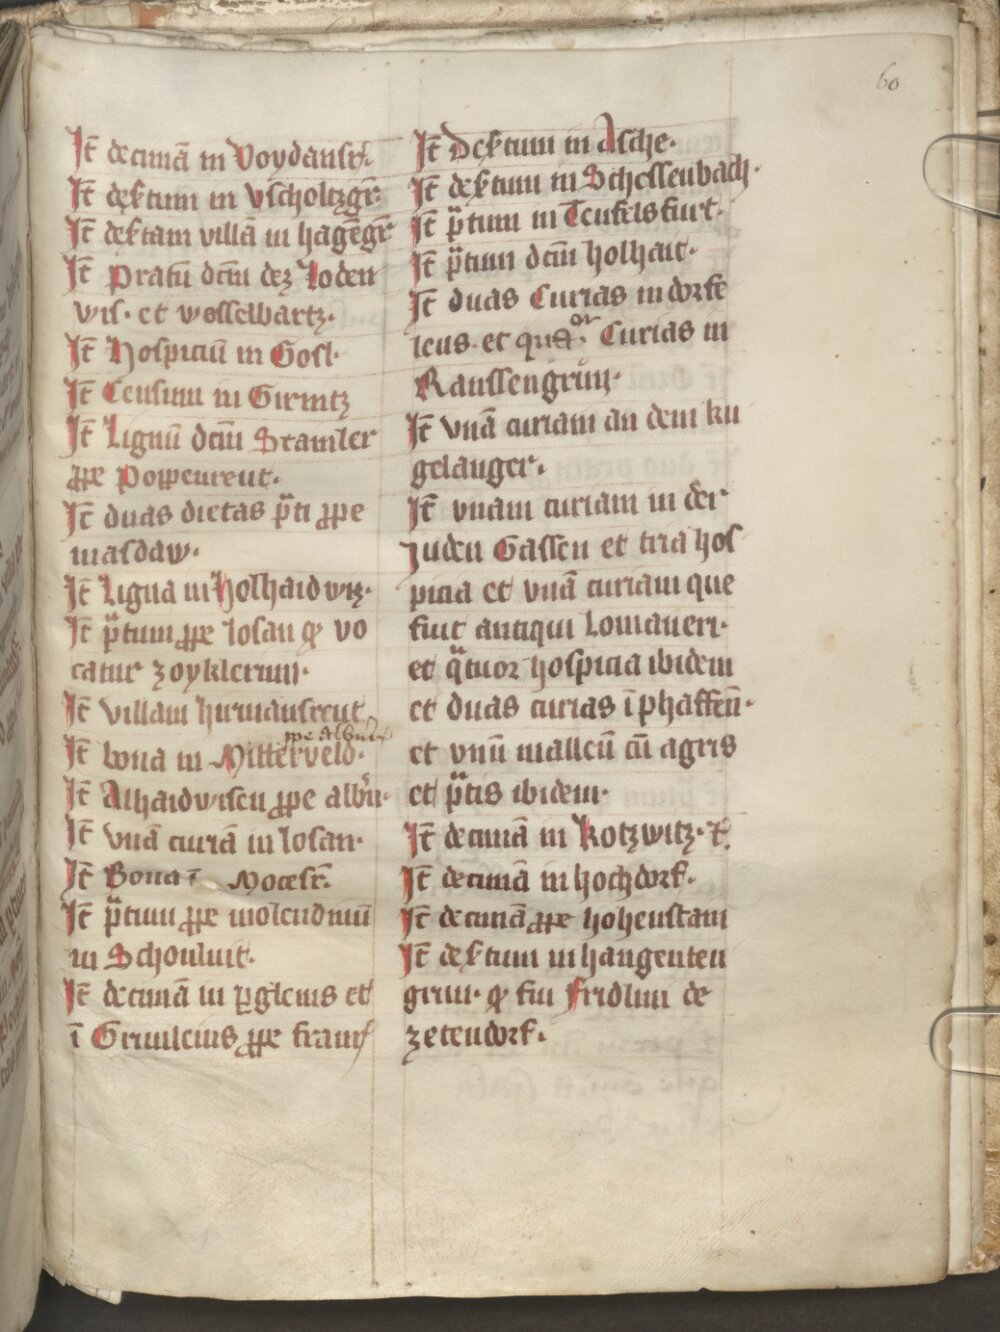 60
Jt̄ decimā in Voydansr̄.
Jt̄ deſertum in vscholtzgr̄.
Jt̄ deſertam villā in hagēgr̄
Jt̄ pratū dcm̄ dez Joden
wis. et wesselbartz.
Jt̄ Hospiciū in Gosl.
Jt̄ Censum in Girnitz
Jt̄ Lignū dcm̄ Stamler
ꝓpe Poppenreut.
Jt̄ duas dietas p̄ti ꝓpe
masdaw.
Jt̄ Ligna in Holhaid wiz.
Jt̄ p̄tum ꝓpe Iosan qͦ vo
catur zoyklerinn.
Jt̄ villam hirmansreut
ꝓpe Albnr̄
Jt̄ bona in Mitterveld.
Jt̄ Alhaidwisen ꝓpe albn̄r.
Jt̄ vnā curiā in Iosan.
Jt̄ Bona ī Mocesr̄.
Jt̄ p̄tum ꝓpe molendinū
in Schonluit.
Jt̄ decimā in pgleins et
ī Grunleins ꝓpe franſ
Jt̄ Deſertum in Asche.
Jt̄ deſertum in Schossenbach.
Jt̄ p̄tum in Teufelsfurt.
Jt̄ p̄tum dcm̄ holhait.
Jt̄ duas Curias in dorfe
leus et qua.or Curias in
Raussengrün.
Jt̄ vnā curiam an dem ku
gelanger.
Jt̄ vnam curiam in der
Juden Gassen et tria hos
picia et vnā curiam que
fuit antiqui Lomaueri.
et q̄tuor hospicia ibidem
et duas curias ī phaffen̄.
et vnū malleū cū agris
et p̄tis ibidem.
Jt̄ decimā in Kotzwitz. t̄.
Jt̄ decimā in hochdorf.
Jt̄ decimā ꝓpe hohenstam
Jt̄ deſertum in hangenten
grun. qͦ fui Fridlini de
zetendorf.